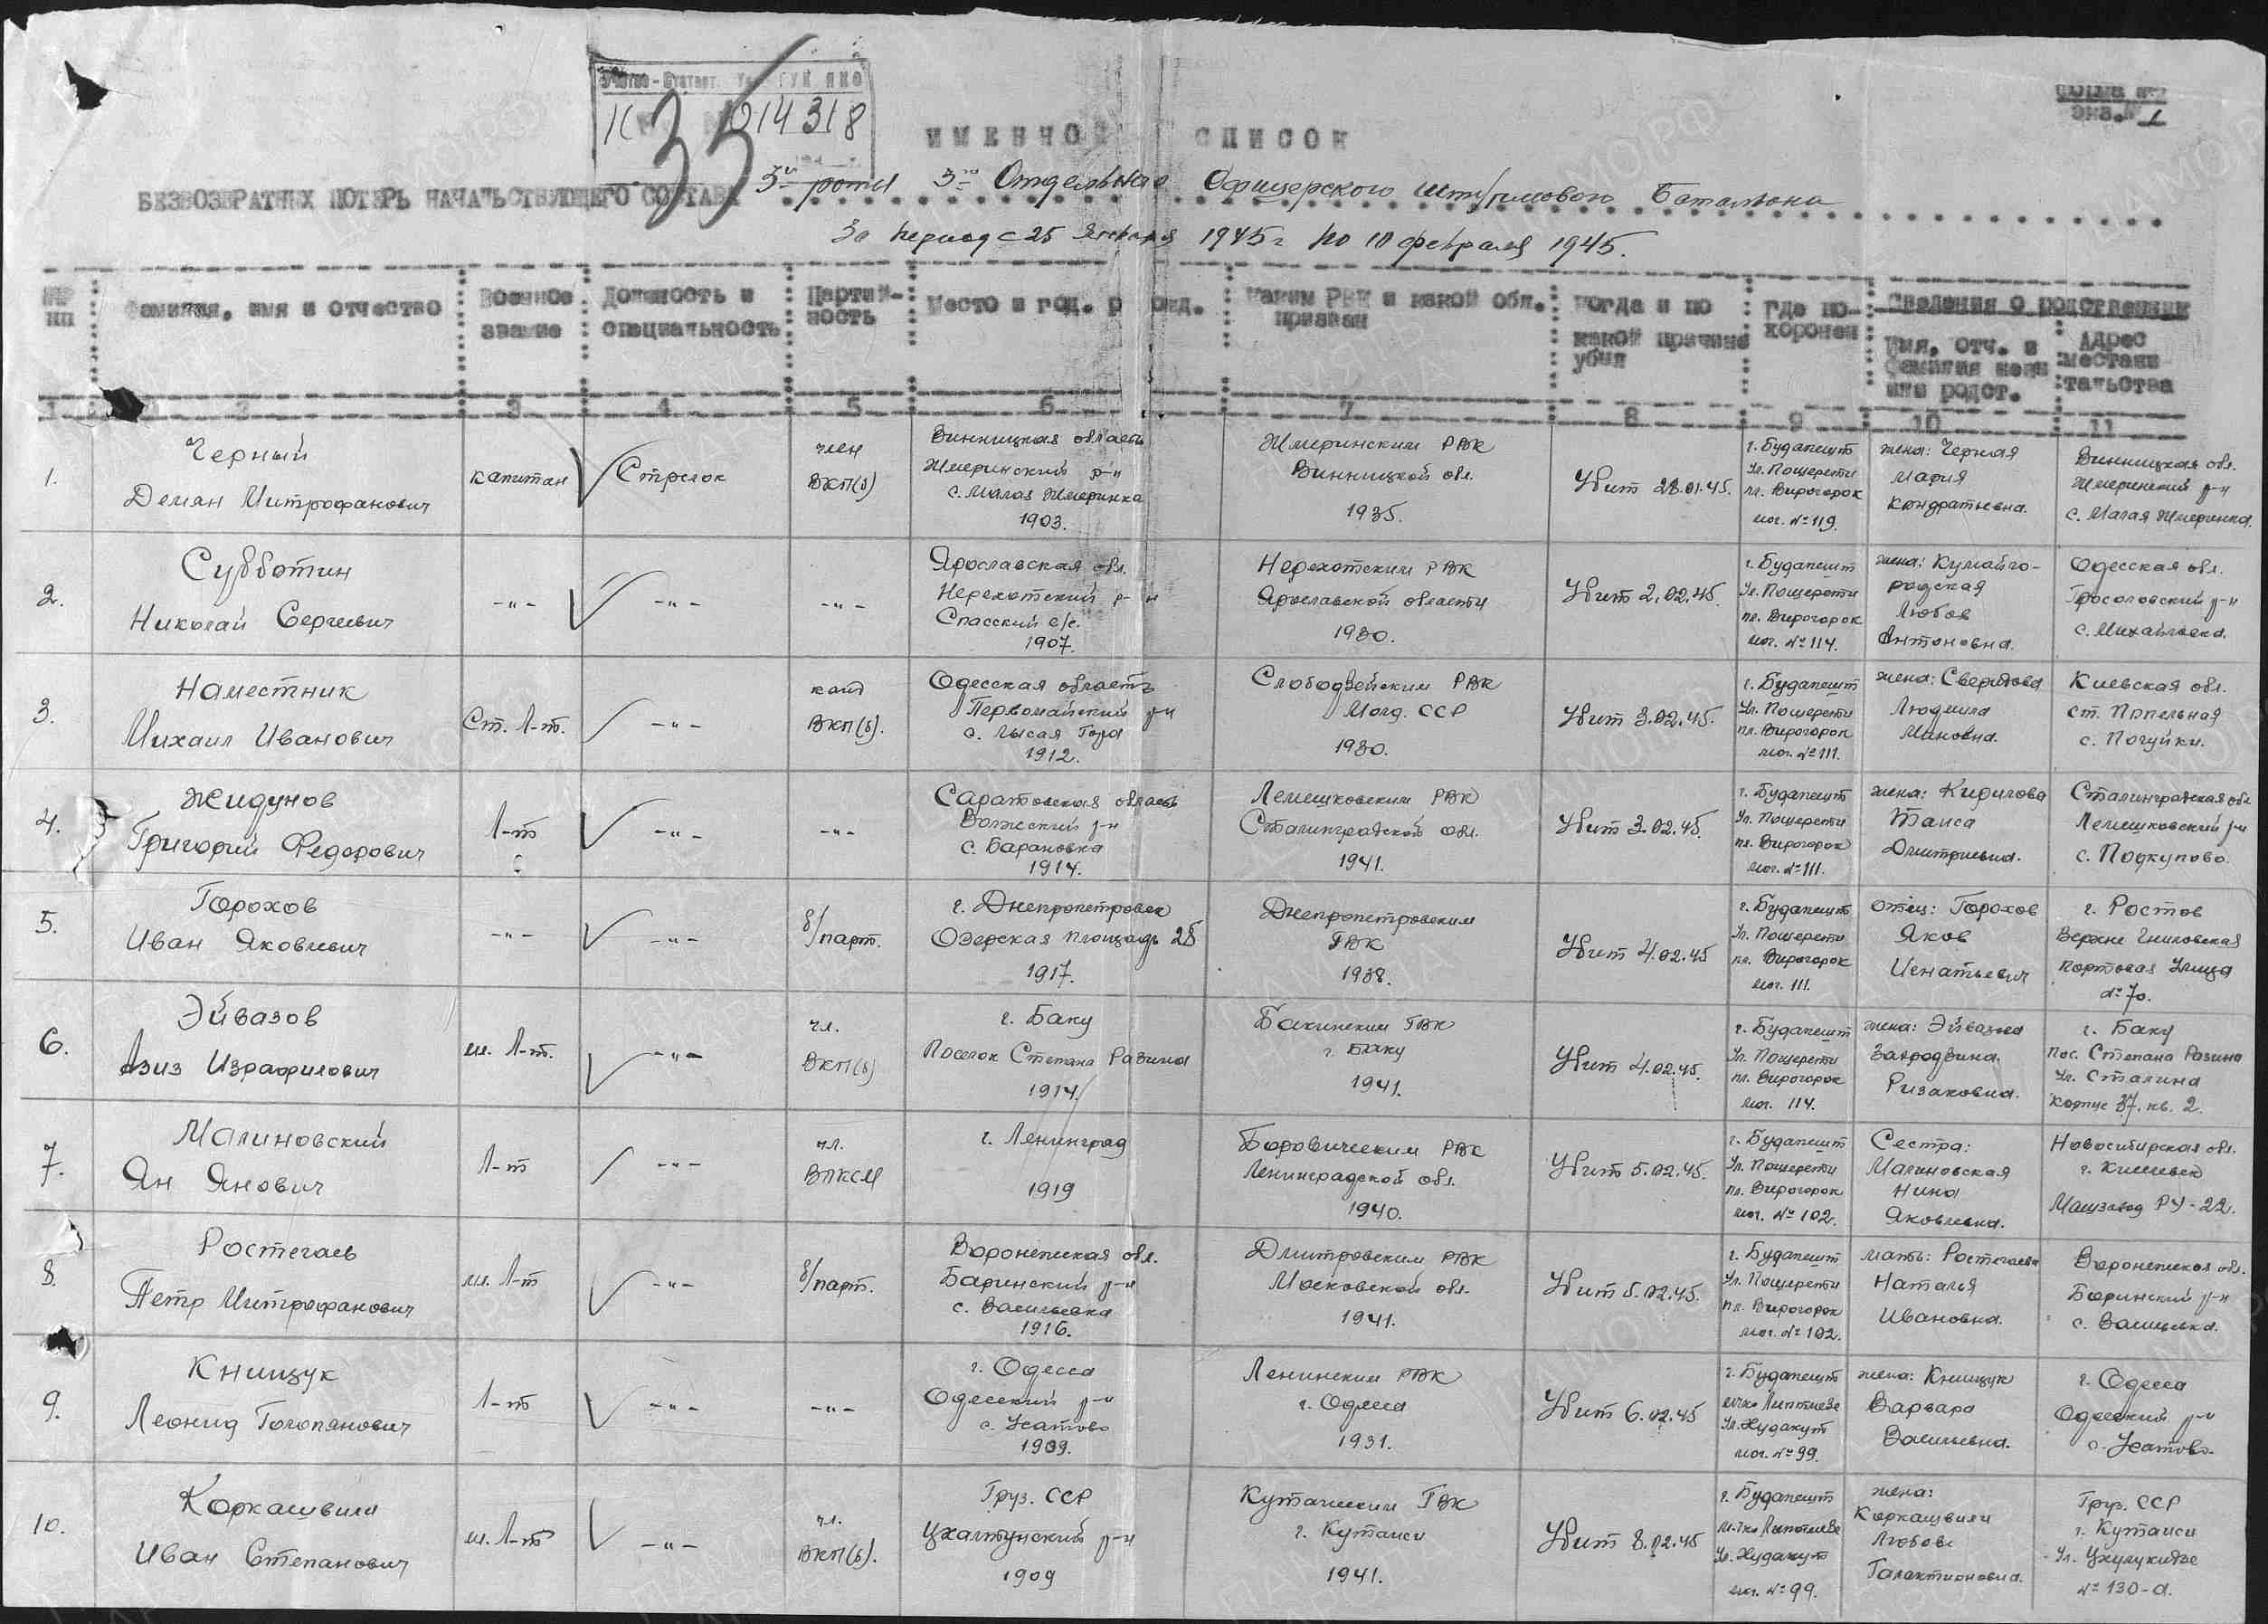 Учетно-Статист. Упр. ГУК НКО
014318
35
Форма №2
Экз.№ 1
ИМЕННОЙ СПИСОК
БЕЗВОЗВРАТНЫХ ПОТЕРЬ НАЧАЛЬСТВУЮЩЕГО СОСТАВА 3й роты 3го Отдельного Офицерского Штурмового Батальона
За период с 25 Января 1945г по 10 февраля 1945.
№№ пп
Фамилия, имя и отчество
Военное звание
Должность и специальность
Партийность
Место и год. рожд.
Каким РВК и какой обл. призван
Когда и по какой причине убыл
Где похоронен
Сведения о родственник
Имя, отч. и фамилия жены или родст.
Адрес местожительства
1 2 3 4 5 6 7 8 9 10 11
1.
Черный
Демян Митрофанович
капитан
Стрелок
член
ВКП(б)
Винницкая область
Жмеринский р-н
с. Малая Жмеринка
1903.
Жмеринским РВК
Винницкой обл.
1935.
Убит 28.01.45.
г. Будапешт
Ул. Пошерети
пл. Вирогорок
мог. № 119.
жена: Черная
Мария
Кондратьевна.
Винницкая обл.
Жмеринский р-н
с. Малая Жмеринка.
2.
Субботин
Николай Сергеевич
-"-
-"-
-"-
Ярославская обл.
Нерехотский р-н
Спасский с/с.
1907.
Нерехотским РВК
Ярославской области
1930.
Убит 2.02.45.
г. Будапешт
Ул. Пошерети
пл. Вирогорок
мог. № 114.
жена: Кумайго-
родская
Любов
Антоновна.
Одесская обл.
Гросоловский р-н
с. Михайловка.
3.
Наместник
Михаил Иванович
Ст. Л-т.
-"-
канд
ВКП(б).
Одесская область
Первомайский р-н
с. Лысая Гора
1912.
Слободзейским РВК
Молд. ССР
1930.
Убит 3.02.45.
г. Будапешт
Ул. Пошерети
пл. Вирогорок
мог. № 111.
жена: Сверидова
Людмила
Киевская обл.
ст. Попельная
с. Почуйки.
4.
Жидунов
Григорий Федорович
Л-т
-"-
-"-
Саратовская область
Волжский р-н
с. Барановка
1914.
Лемешковским РВК
Сталинградской обл.
1941.
Убит 3.02.45.
г. Будапешт
Ул. Пошерети
пл. Вирогорок
мог. № 111.
жена: Кирилова
Таиса
Дмитриевна.
Сталинградская обл
Лемешковский р-н
с. Подкупово.
5.
Горохов
Иван Яковлевич
-"-
-"-
б/парт.
г. Днепропетровск
Озерская площадь 28
1917.
Днепропетровским
ГВК
1938.
Убит 4.02.45
г. Будапешт
Ул. Пошерети
пл. Вирогорок
мог. 111.
отец: Горохов
Яков
Игнатьевич
г. Ростов
Верхне Гниловская
Портовая Улица
№ 70.
6.
Эйвазов
Азиз Израфилович
мл. Л-т.
-"-
чл.
ВКП(б)
г. Баку
Поселок Степана Разина
1914.
Бакинским ГВК
г. Баку
1941.
Убит 4.02.45.
г. Будапешт
Ул. Пошерети
пл. Вирогорок
мог. 114.
жена: Эйвазова
Ризаковна.
г. Баку
пос. Степана Разина
Ул. Сталина
Корпус 37. кв. 2.
7.
Малиновский
Ян Янович
Л-т
-"-
чл.
ВЛКСМ
г. Ленинград
1919
Боровическим РВК
Ленинградской обл.
1940.
Убит 5.02.45.
г. Будапешт
Ул. Пошерети
пл. Вирогорок
мог. № 102.
Сестра:
Малиновская
Нина
Яковлевна.
Новосибирская обл.
г. Киселевск
Машзавод РУ-22.
8.
Ростегаев
Петр Митрофанович
мл. Л-т
-"-
б/парт.
Воронежская обл.
Баринский р-н
с. Васильевка
1916.
Дмитровским РВК
Московской обл.
1941.
Убит 5.02.45.
г. Будапешт
Ул. Пошерети
пл. Вирогорок
мог. № 102.
мать: Ростегаева
Наталья
Ивановна.
Воронежская обл.
Баринский р-н
с. Васильевка.
9.
Книщук
Леонид Голопанович
Л-т
-"-
-"-
г. Одесса
Одесский р-н
с. Усатово
1909.
Ленинским РВК
г. Одесса
1931.
Убит 6.02.45
г. Будапешт
Ул. Худакут
мог. № 99.
жена: Книщук
Варвара
Васильевна.
г. Одесса
Одесский р-н
с. Усатово.
10.
Коркашвили
Иван Степанович
мл. Л-т
-"-
чл.
ВКП(б).
Груз. ССР
Цхалтунский р-н
1909
Кутаисским ГВК
г. Кутаиси
1941.
Убит 8.02.45
г. Будапешт
Ул. Худакут
мог. № 99.
жена:
Коркашвили
Любовь
Галактионовна.
Груз. ССР
г. Кутаиси
Ул. Цхулукидзе
№ 130-а.